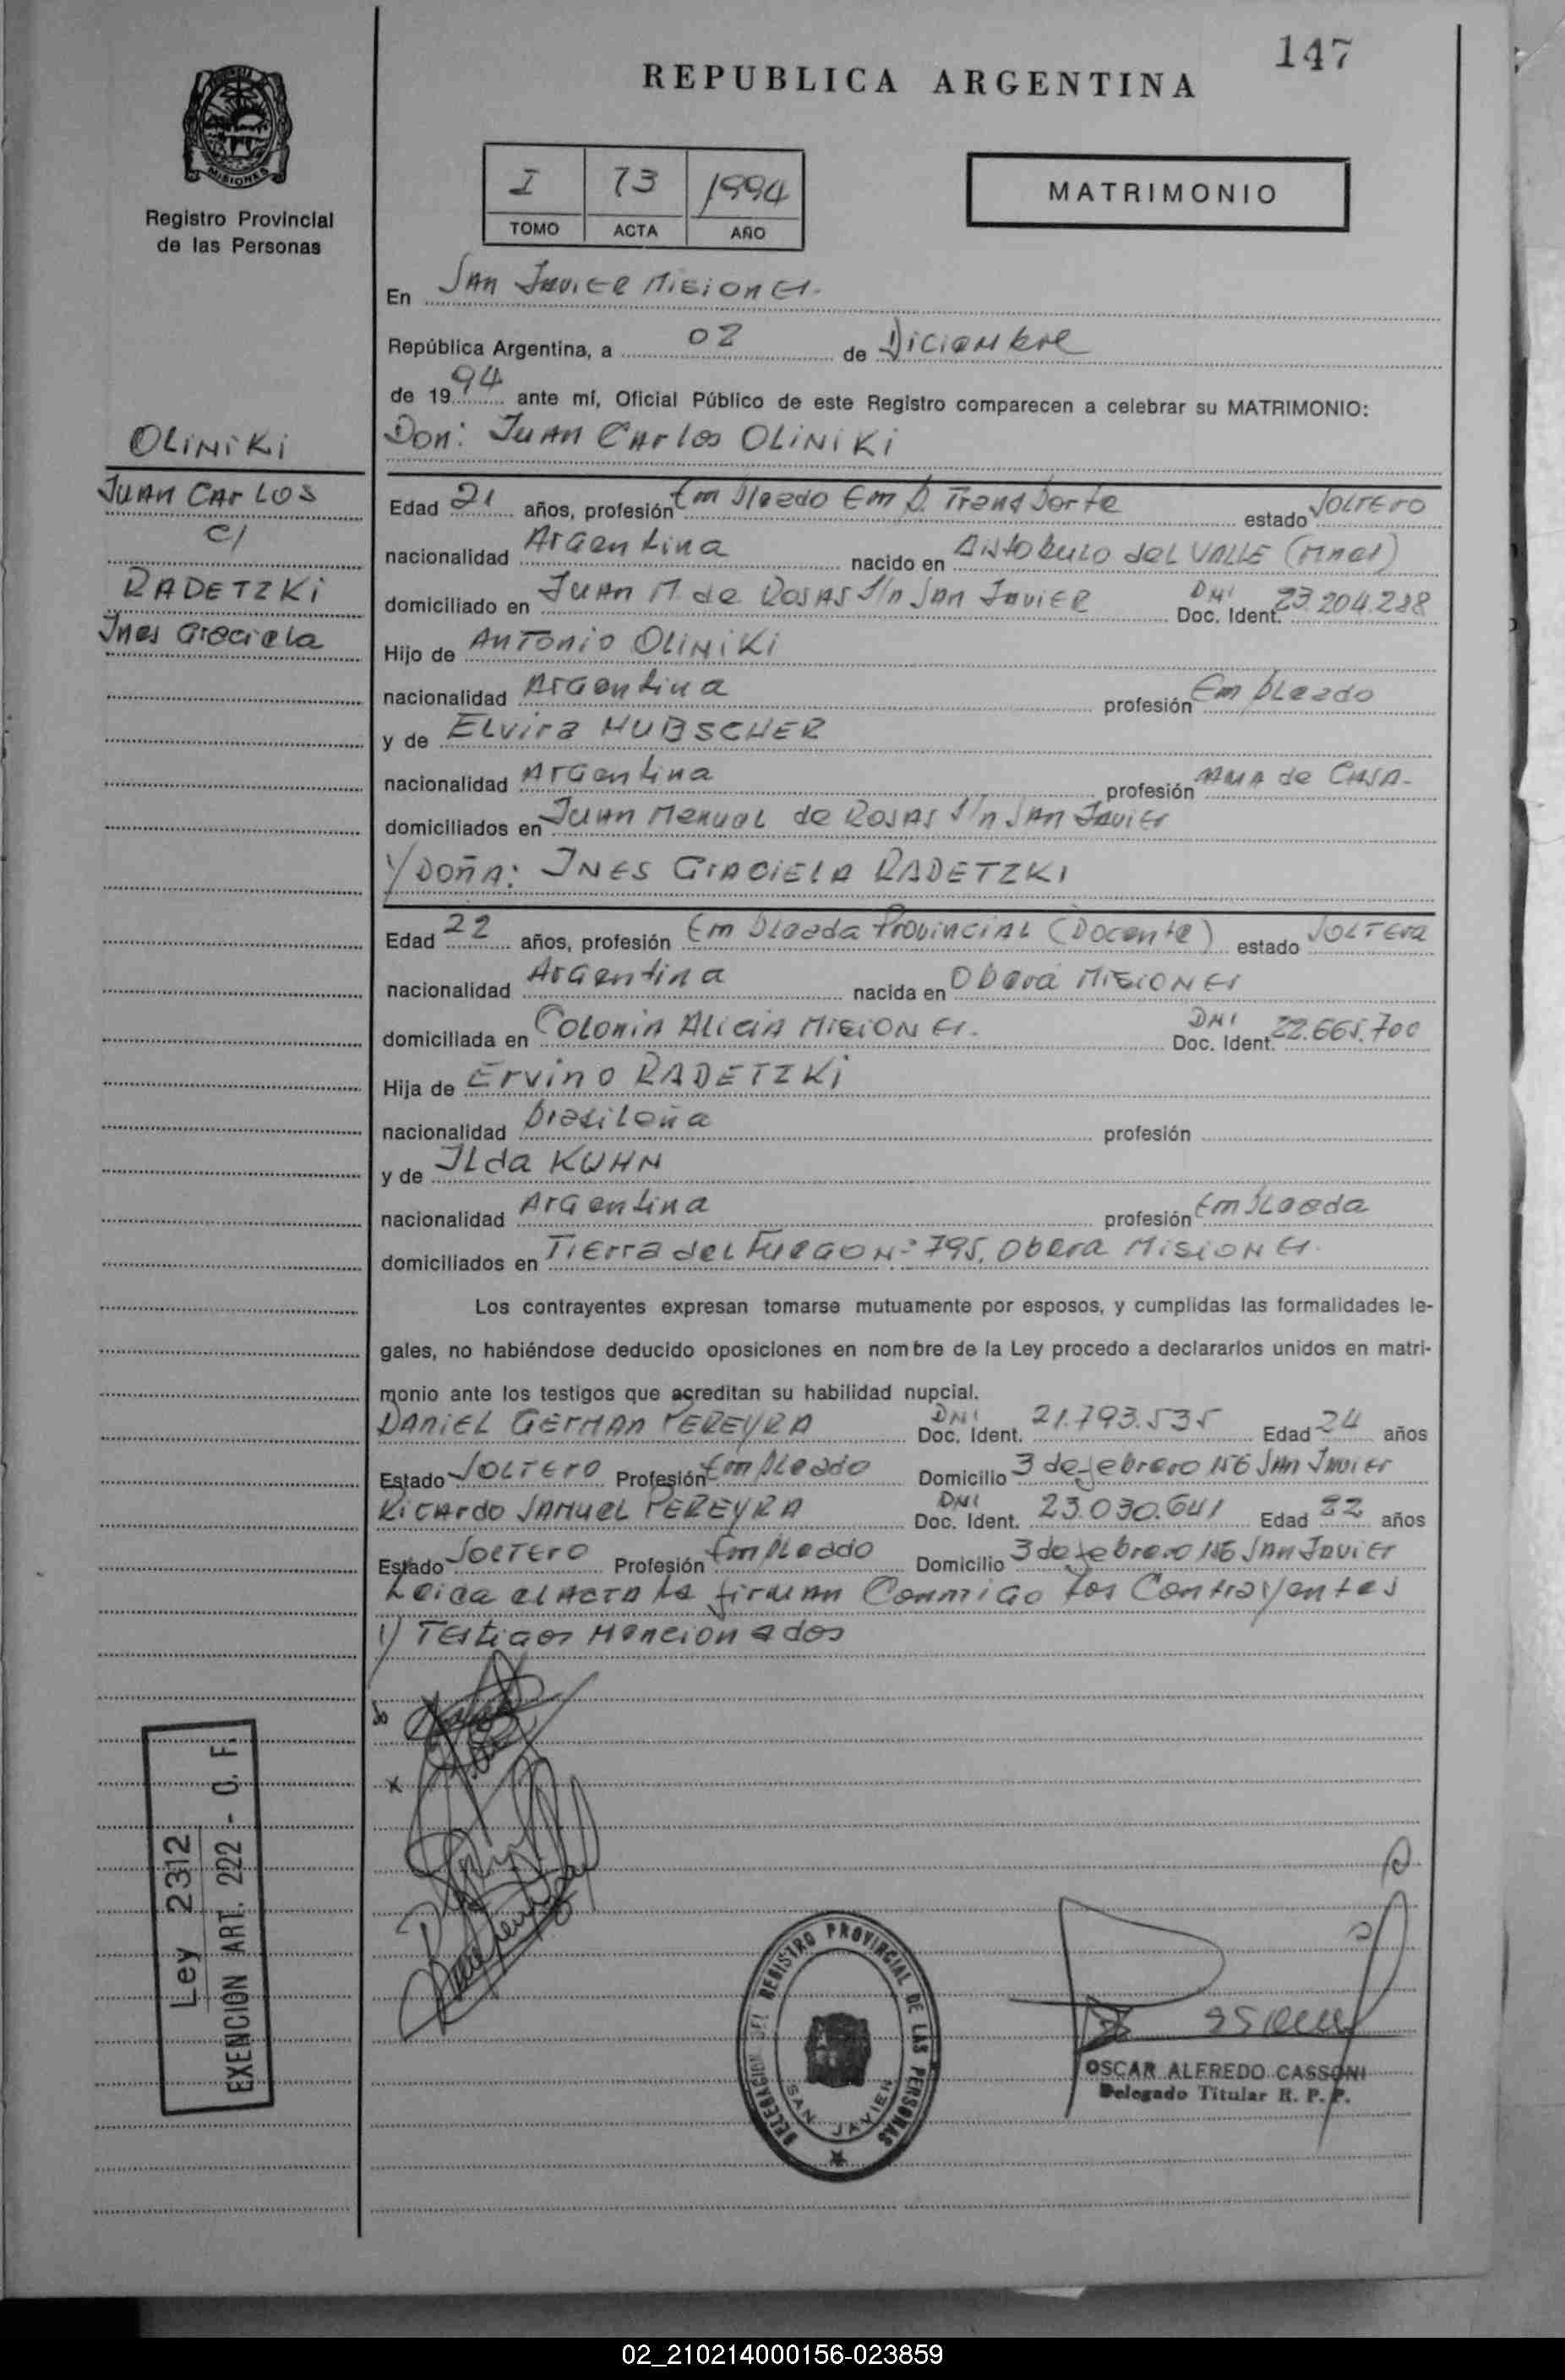 147
REPUBLICA ARGENTINA
MISIONES
Registro Provincial
de las Personas
I 73 1994
TOMO ACTA AÑO
MATRIMONIO
En San Javier Misiones.
República Argentina, a 02 de Diciembre
de 1994 ante mí, Oficial Público de este Registro comparecen a celebrar su MATRIMONIO:
OLINIKI
JUAN CARLOS
C/
RADETZKI
Ines Graciela
Don: Juan Carlos OLINIKI
Edad 21 años, profesión Empleado Emp. Transporte estado Soltero
nacionalidad Argentina nacido en Aristobulo del Valle (Mnes)
domiciliado en Juan M de Rosas S/n San Javier DNI Doc. Ident. 23.204.288
Hijo de Antonio OLINIKI
nacionalidad Argentina profesión Empleado
y de Elvira HUBSCHER
nacionalidad Argentina profesión Ama de Casa.
domiciliados en Juan Manual de Rosas S/n San Javier
Y Doña: INES GRACIELA RADETZKI
Edad 22 años, profesión Empleada Provincial (Docente) estado Soltera
nacionalidad Argentina nacida en Oberá Misiones
domiciliada en Colonia Alicia Misiones. DNI Doc. Ident. 22.665.700
Hija de Ervino RADETZKI
nacionalidad Brasileña profesión
y de Ilda KUHN
nacionalidad Argentina profesión Empleada
domiciliados en Tierra del Fuego Nº 795. Obera Misiones.
Los contrayentes expresan tomarse mutuamente por esposos, y cumplidas las formalidades le-
gales, no habiéndose deducido oposiciones en nombre de la Ley procedo a declararlos unidos en matri-
monio ante los testigos que acreditan su habilidad nupcial.
DANIEL GERMAN PEREYRA DNI Doc. Ident. 21.793.535 Edad 24 años
Estado Soltero Profesión Empleado Domicilio 3 de febrero 156 San Javier
Ricardo Samuel PEREYRA DNI Doc. Ident. 23.030.641 Edad 22 años
Estado Soltero Profesión Empleado Domicilio 3 de febrero 156 San Javier
Leida el Acta la firman Conmigo los Contrayentes
y Testigos Mencionados
Ley 2312
EXENCION ART. 222 - C. F.
DELEGACION DEL REGISTRO PROVINCIAL DE LAS PERSONAS
SAN JAVIER
OSCAR ALFREDO CASSONI
Delegado Titular R. P. P.
02_210214000156-023859